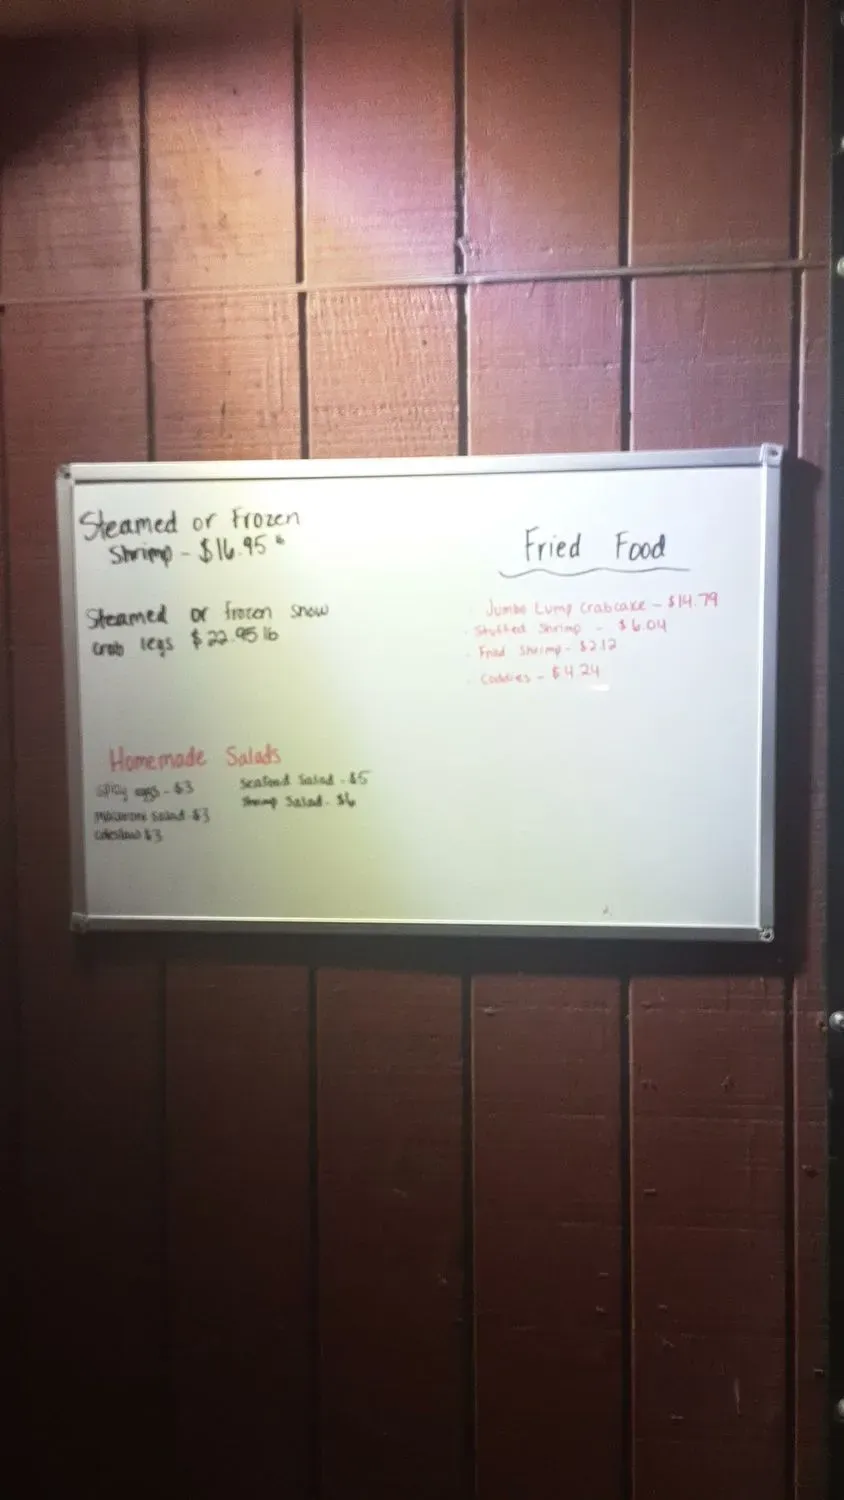 Steamed or Frozen
Shrimp - $16.95 lb
Steamed or frozen snow
crab legs $22.95 lb
Homemade Salads
spicy eggs - $3
macaroni salad $3
coleslaw $3
Seafood Salad - $5
Shrimp Salad - $6
Fried Food
Jumbo Lump Crabcake - $14.79
Stuffed Shrimp - $6.04
Fried Shrimp - $2.12
Coddies - $4.24